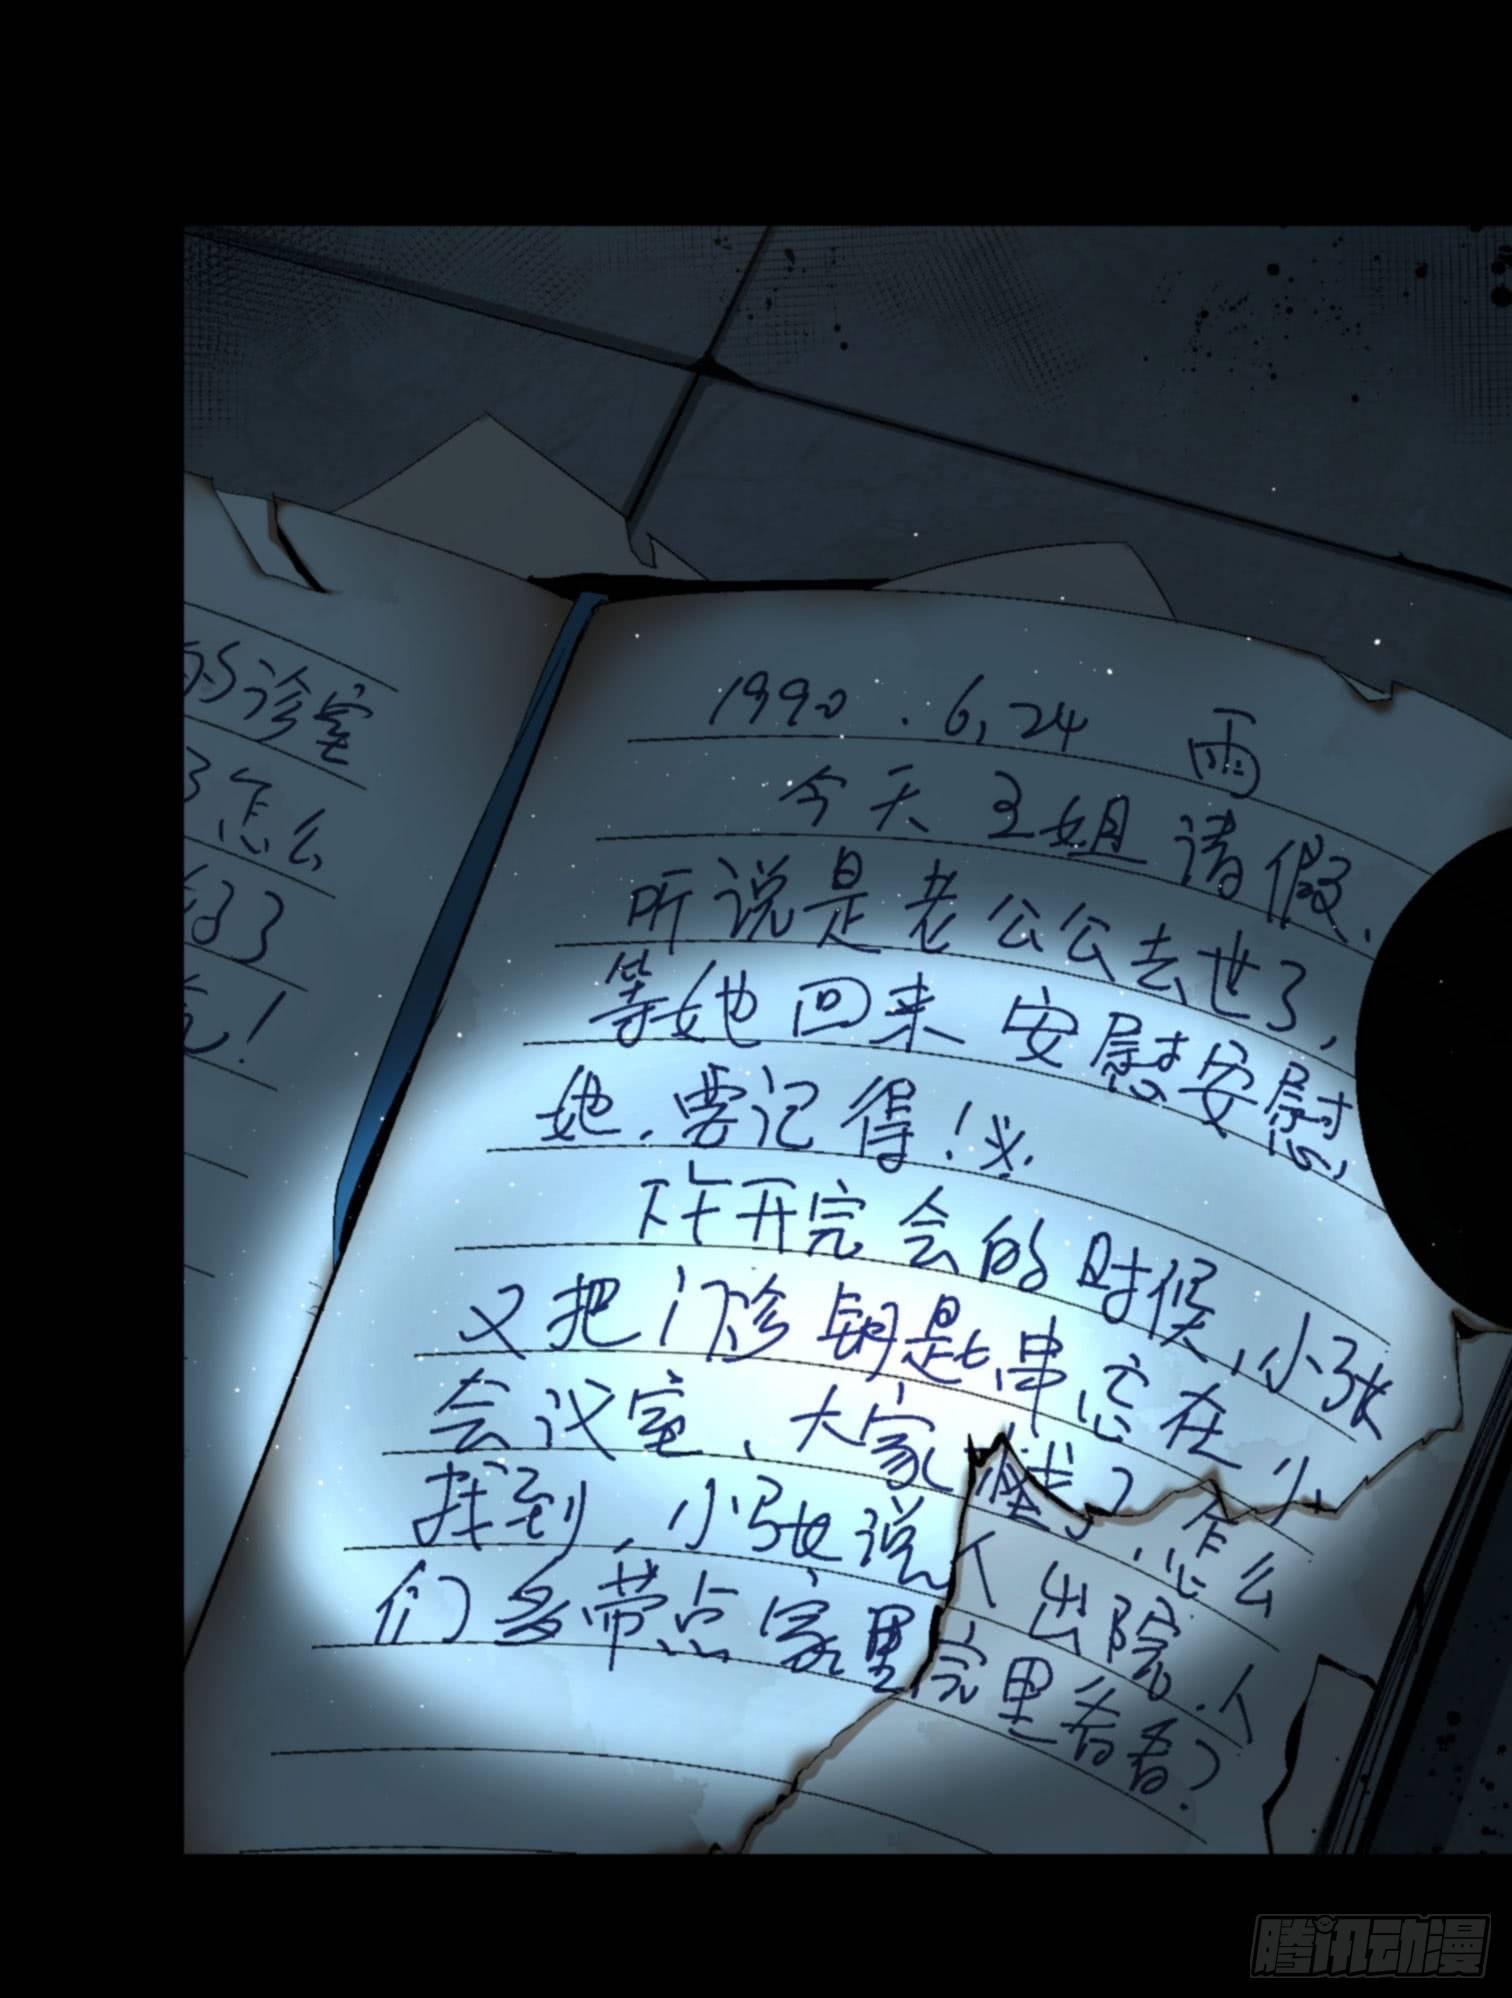 的诊室
了怎么
好了
！
1990.6.24 雨
今天王姐请假，
听说是老公公去世了，
等她回来安慰安慰
她，要记得！
昨开完会的时候，小张
又把门诊钥匙串忘在
会议室、大家了，怎么
找到，小张说个出院，个
们多带点家里完里看看）
腾讯动漫